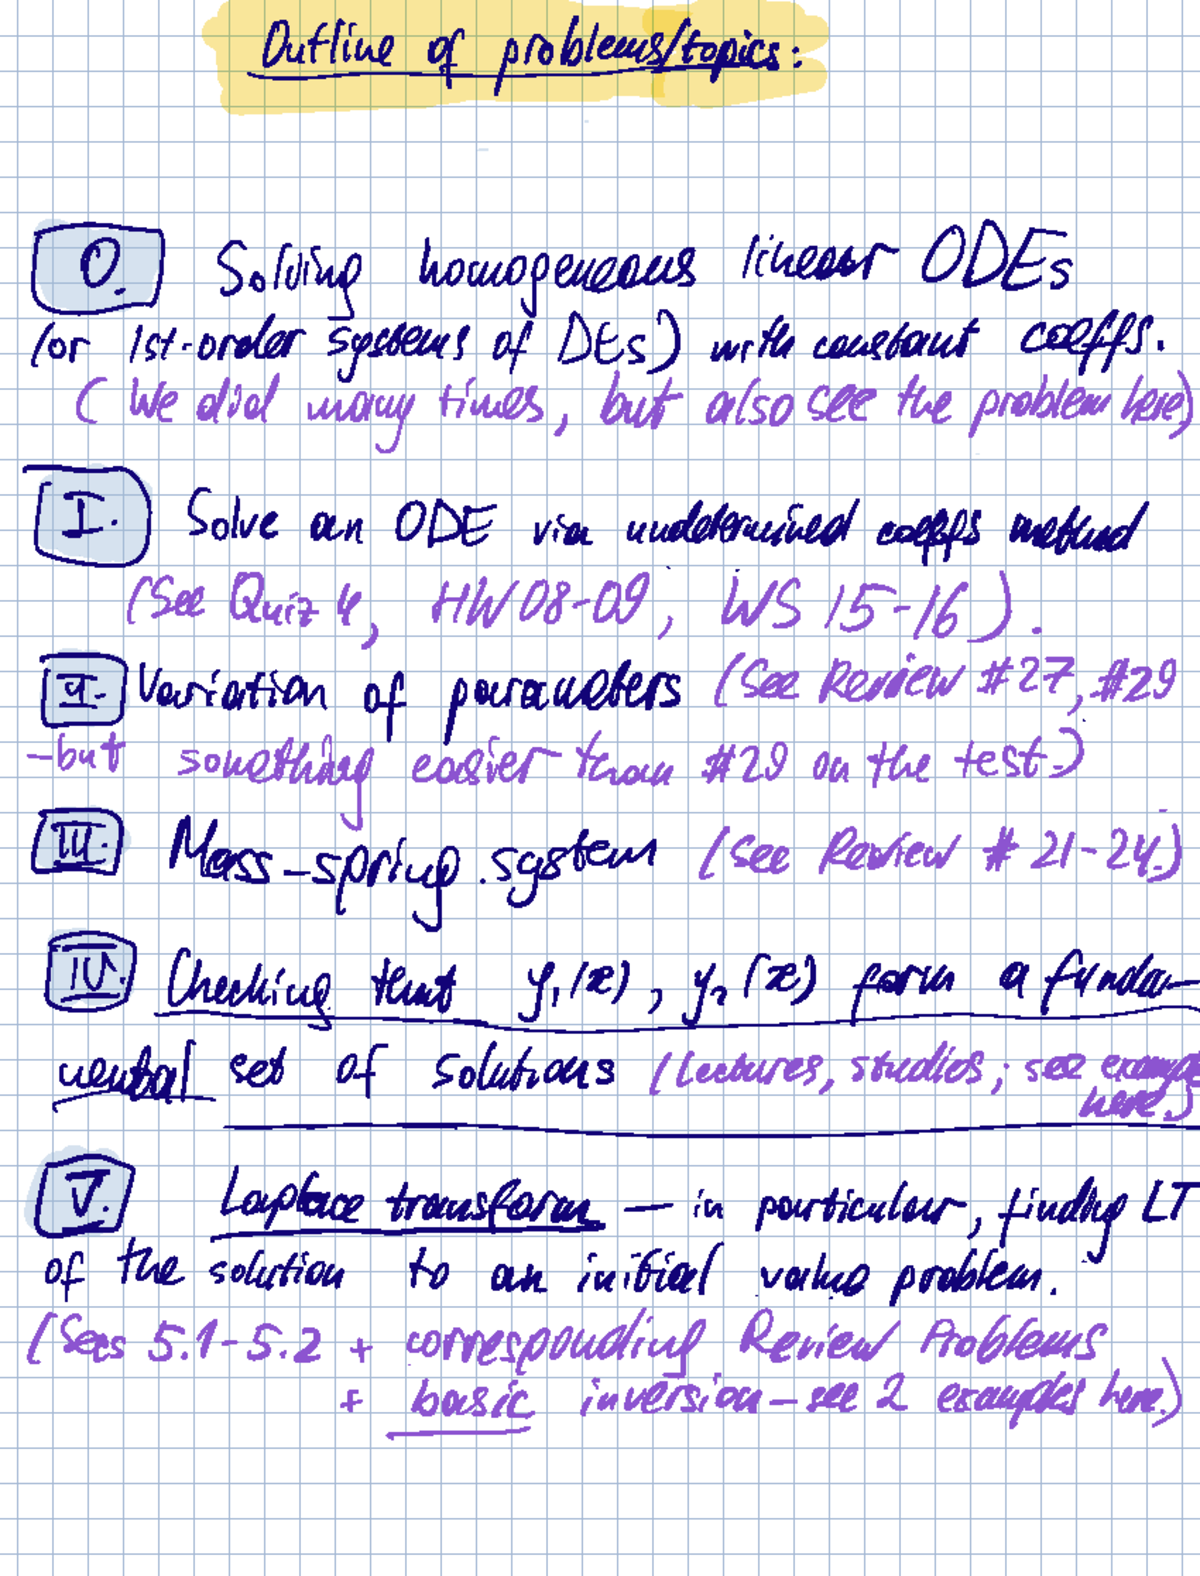 Outline of problems/topics:
0. Solving homogeneous linear ODEs
(or 1st-order systems of DEs) with constant coeffs.
(We did many times, but also see the problem here)
I. Solve an ODE via undetermined coeffs method
(See Quiz 4, HW 08-09, WS 15-16).
II. Variation of parameters (See Review #27, #29
-but something easier than #29 on the test.)
III. Mass-spring system (See Review # 21-24.)
IV. Checking that y₁(x), y₂(x) form a funda-
mental set of solutions (Lectures, studios; see example
here.)
V. Laplace transform — in particular, finding LT
of the solution to an initial value problem.
(Secs 5.1-5.2 + corresponding Review Problems
+ basic inversion - see 2 examples here.)